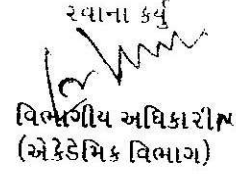 રવાના કર્યું
વિભાગીય અધિકારી
(એકેડેમિક વિભાગ)